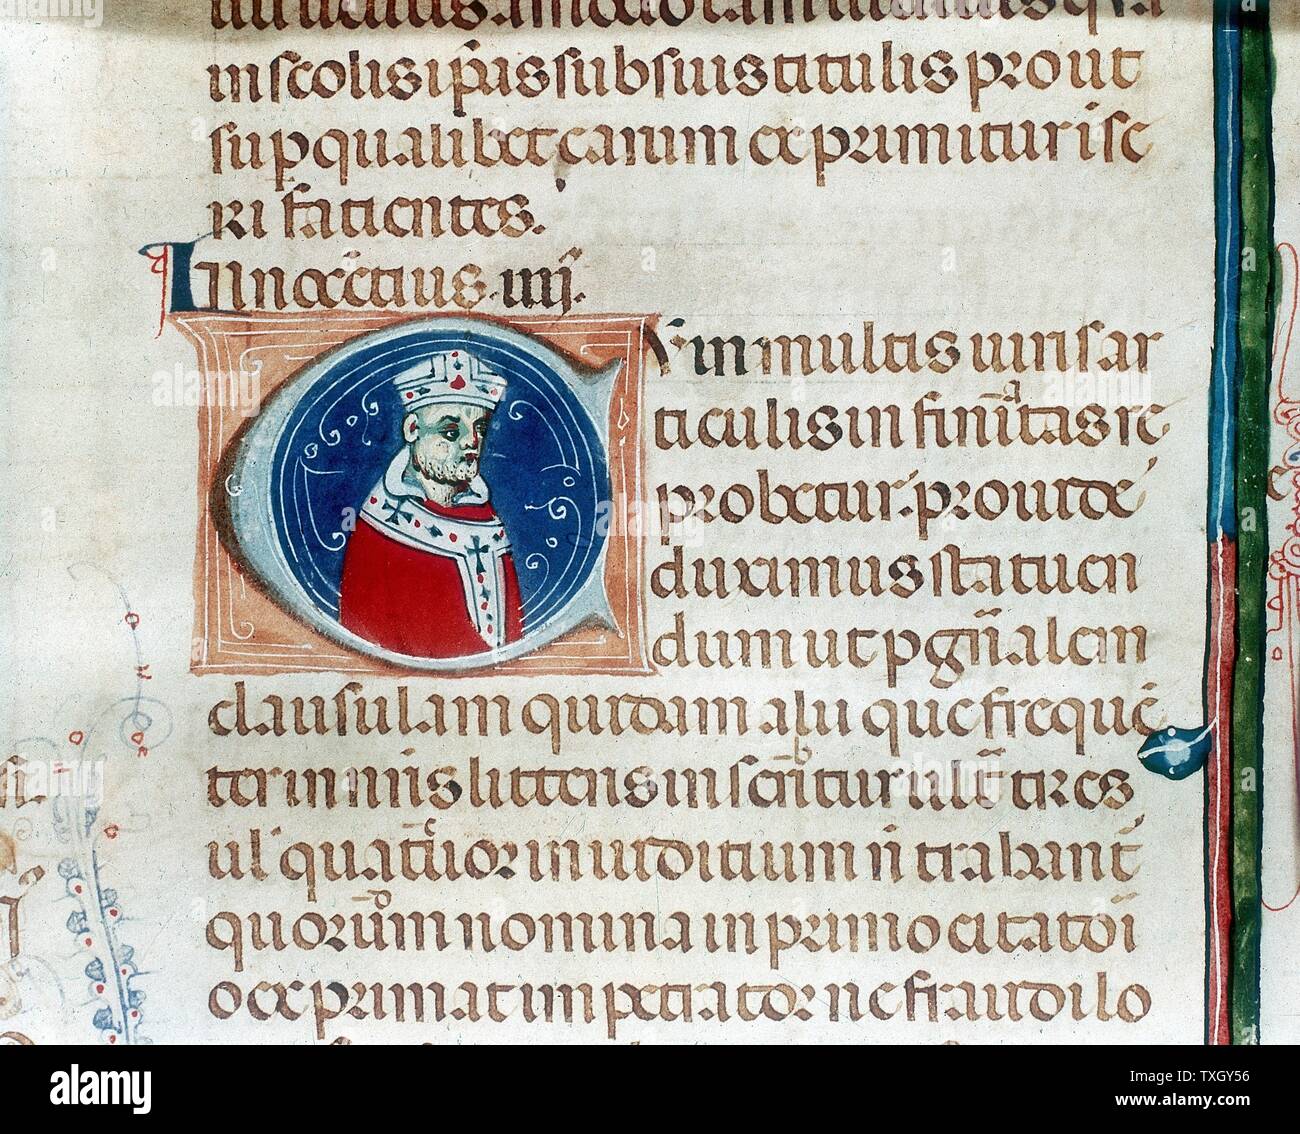 in scolis ip̃is sub suis titulis prout
sup qualibet earum exprimitur ise
ri facientes.
Innocẽtius .iiij.
Cum in multis iuris ar
ticulis infinitas re
probetur. prouidẽ
duximus statuen
dum ut p gñalem
clausulam quidam alij que frequẽ
ter in nr̃is litteris inscribitur ultᵃ tres
ul' quatuor in iudicium ñ trahantᷣ
quorum nomina in primo citatoĩ
o exprimat impetrator ne fraudi lo
alamy
a
a
alamy
Image ID: TXGY56
www.alamy.com